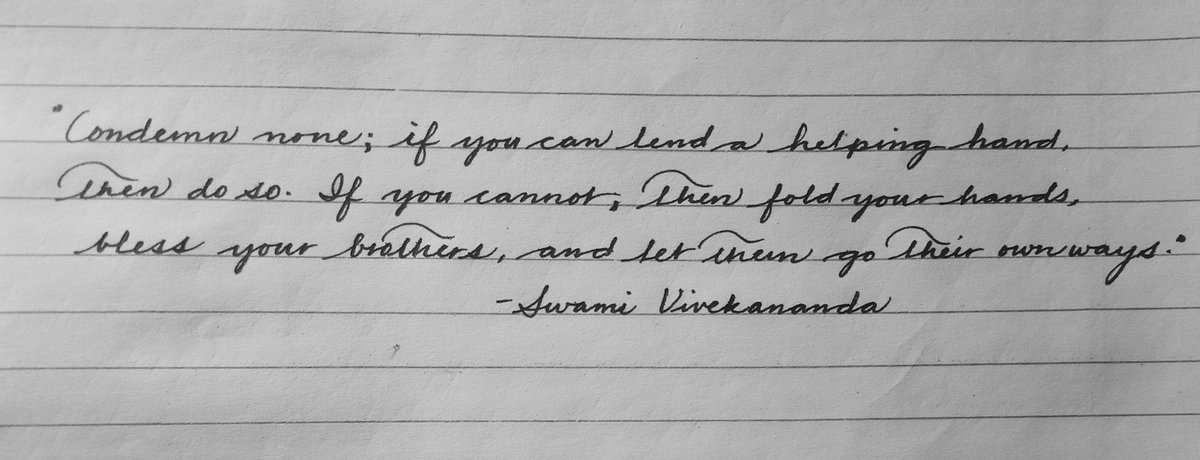 "Condemn none; if you can lend a helping hand,
then do so. If you cannot, then fold your hands,
bless your brothers, and let them go their own ways."
-Swami Vivekananda